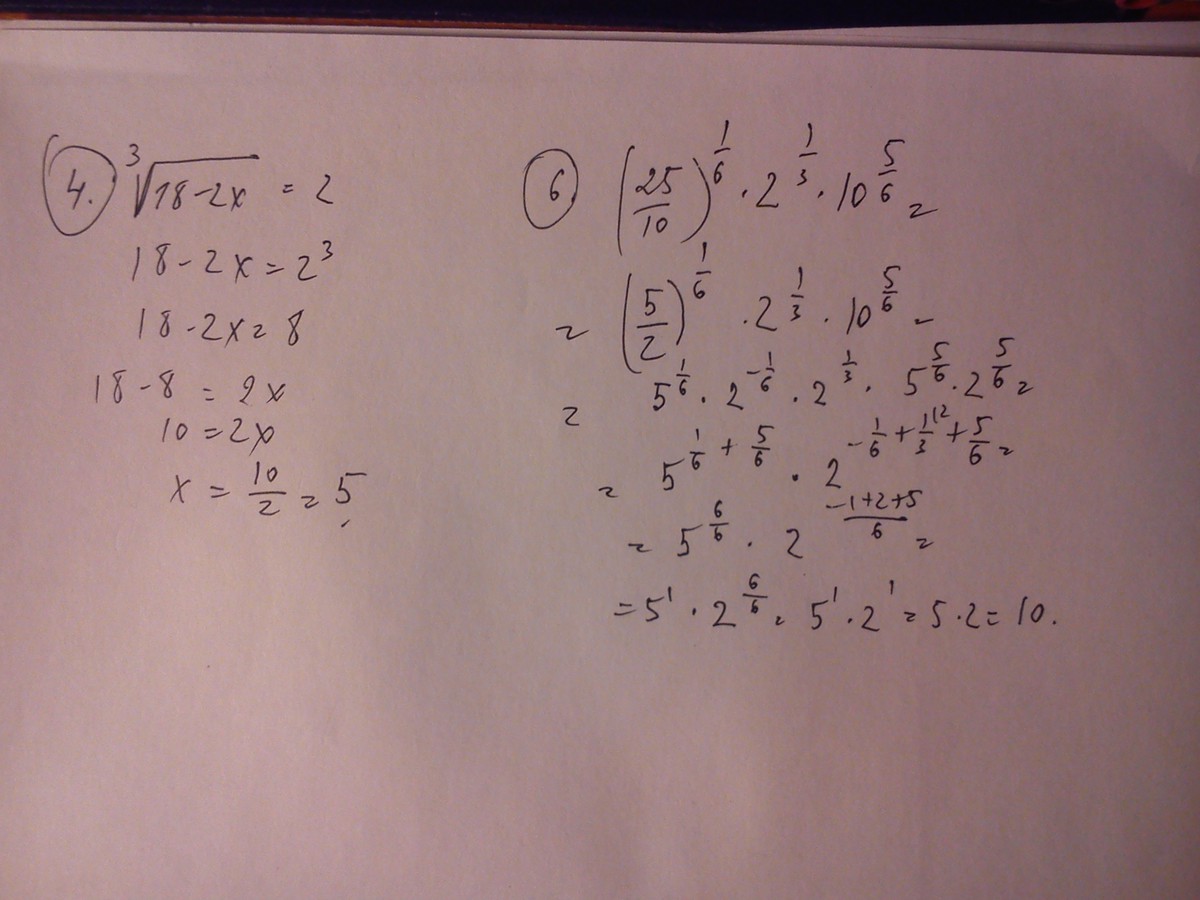 4. ³√18-2x = 2
18-2x=2³
18-2x=8
18-8 = 2x
10=2x
x = 10/2 = 5
6 (25/10)^(1/6) · 2^(1/3) · 10^(5/6) =
= (5/2)^(1/6) · 2^(1/3) · 10^(5/6) =
= 5^(1/6) · 2^(-1/6) · 2^(1/3) · 5^(5/6) · 2^(5/6) =
= 5^(1/6 + 5/6) · 2^(-1/6 + 1/3^(12) + 5/6) =
= 5^(6/6) · 2^((-1+2+5)/6) =
= 5¹ · 2^(6/6) = 5¹ · 2¹ = 5·2 = 10.